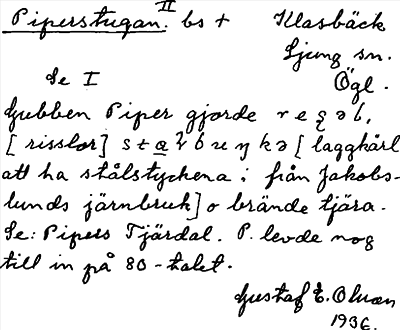 Piperstugan. II bs + Klasbäck
Ljung sn.
Se I Ögl.
Gubben Piper gjorde
[risslor] [laggkärl
att ha stålstyckena i från Jakobs-
lunds järnbruk] o brände tjära.
Se: Pipers Tjärdal. P. levde nog
till in på 80-talet.
Gustaf E. Olson
1936.